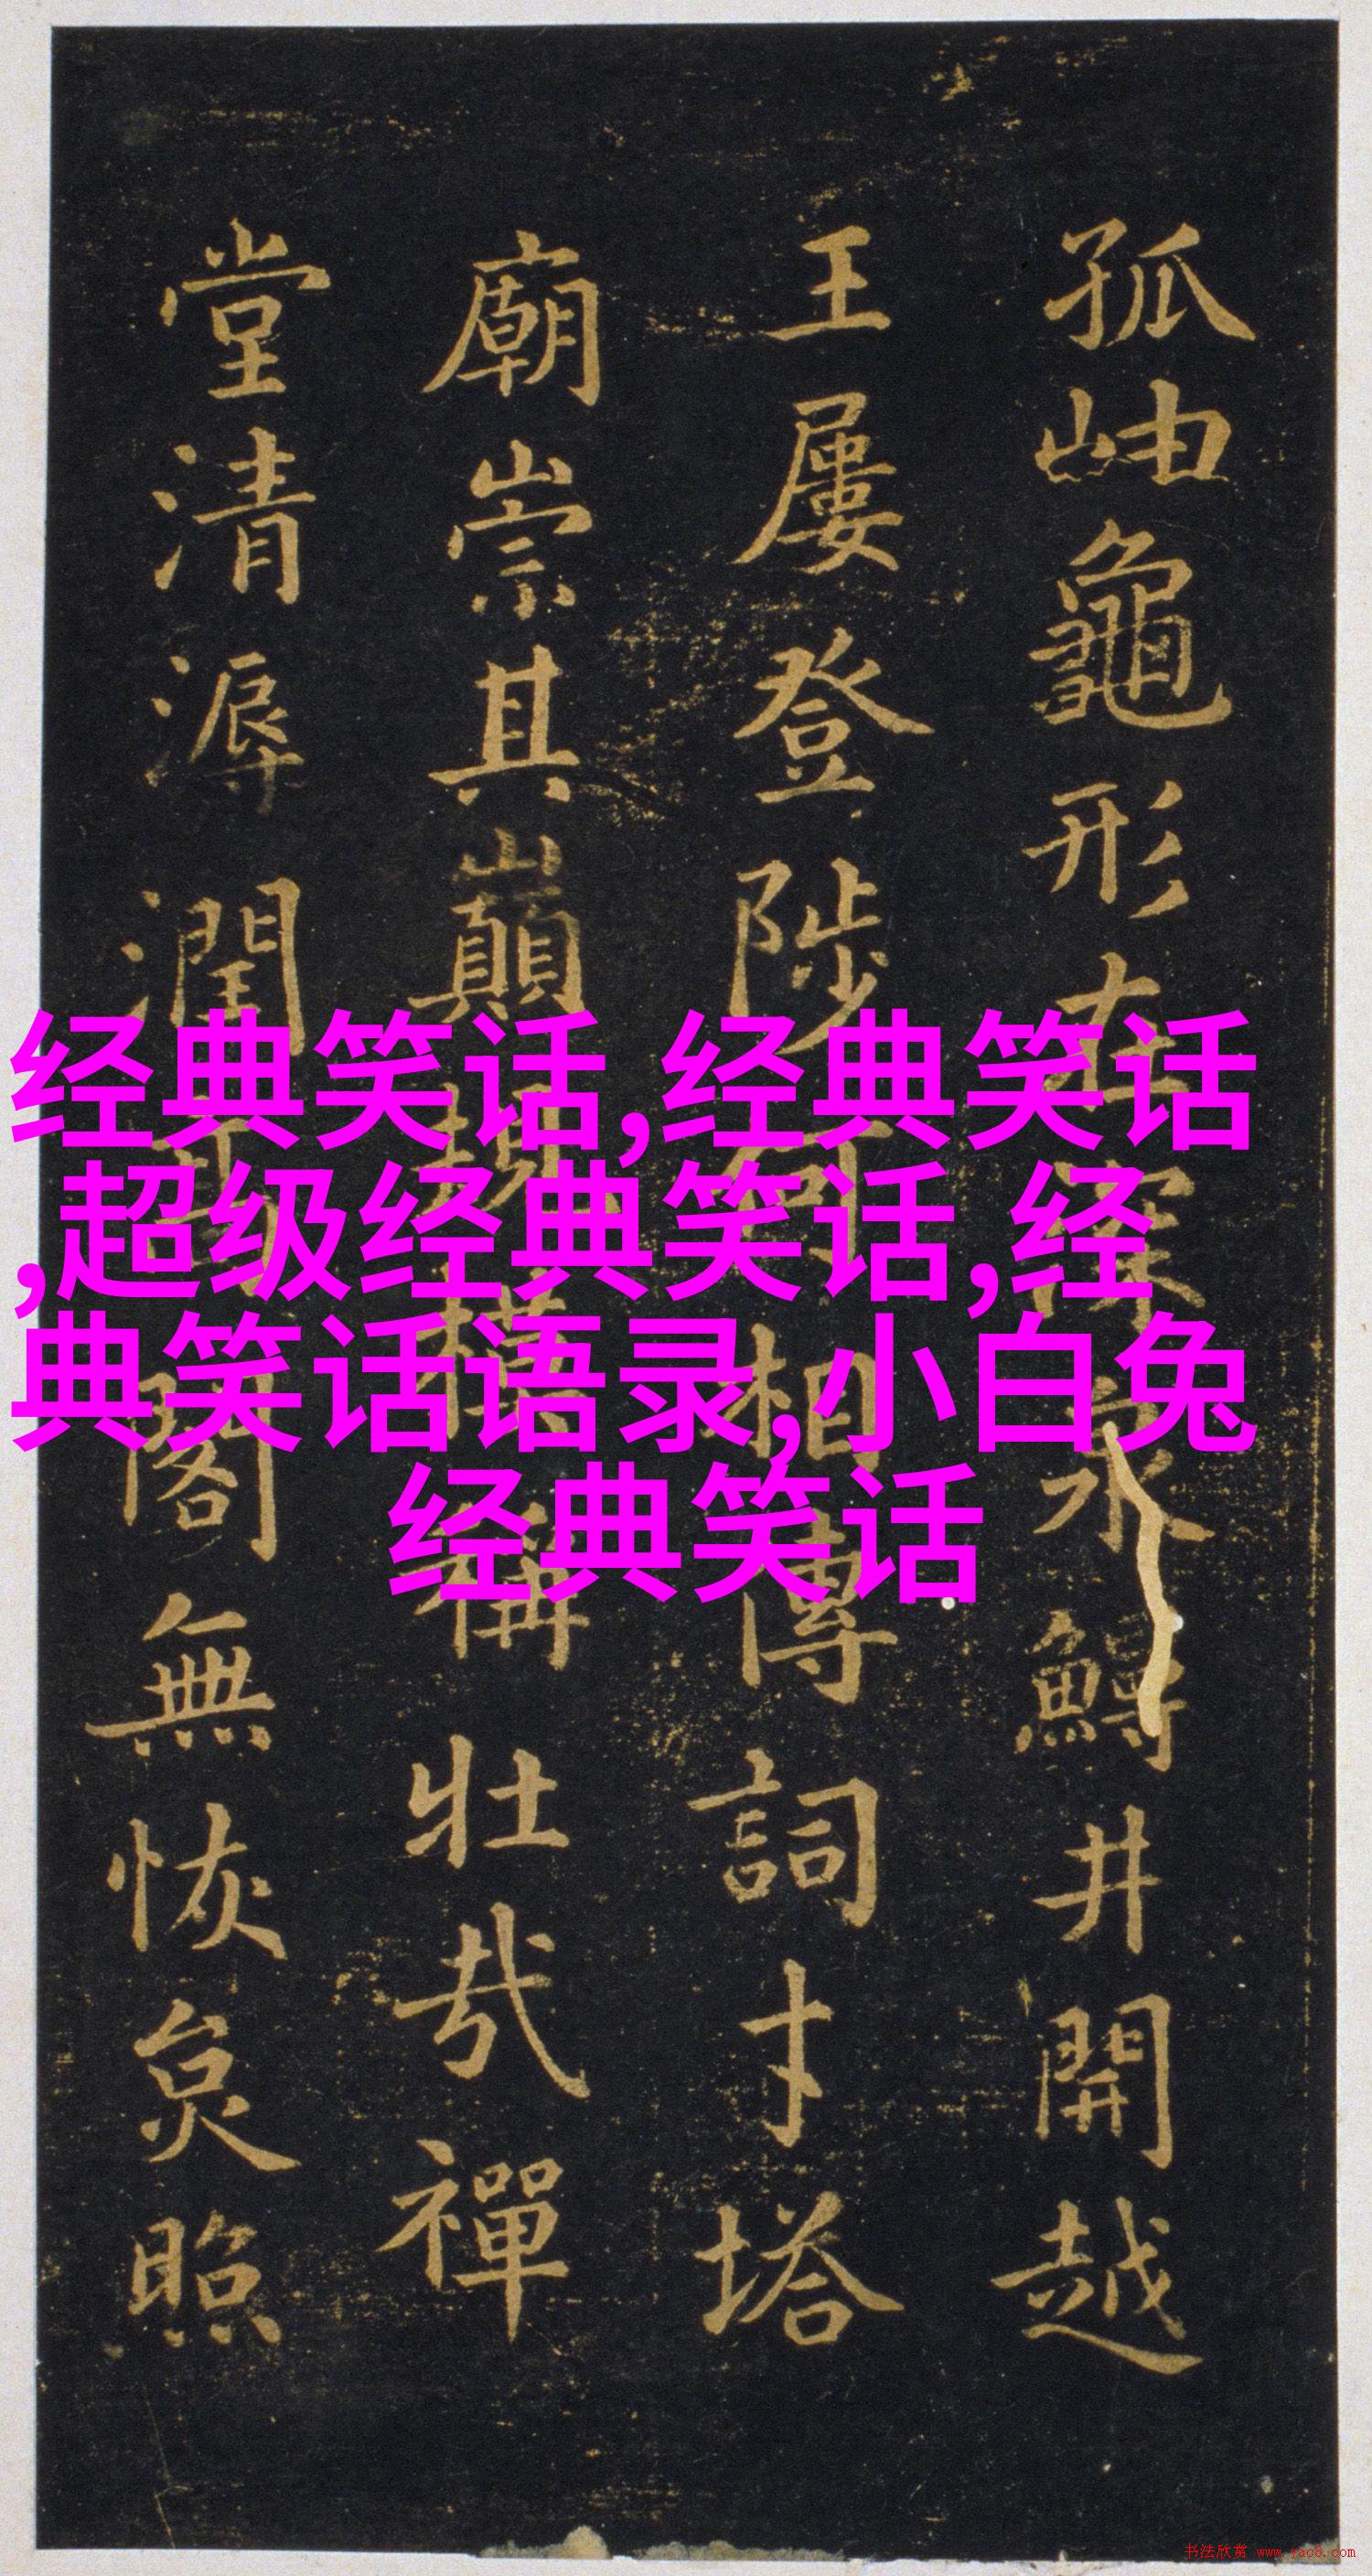 孤岫龜形在深泉鱘井開越
王屢登陟何相傳詞才塔
廟崇其巔規模稱壯哉禪
堂清溽潤高閣無恢炱照
经典笑话,经典笑话
,超级经典笑话,经
典笑话语录,小白兔
经典笑话
书法欣赏 www.yac8.com